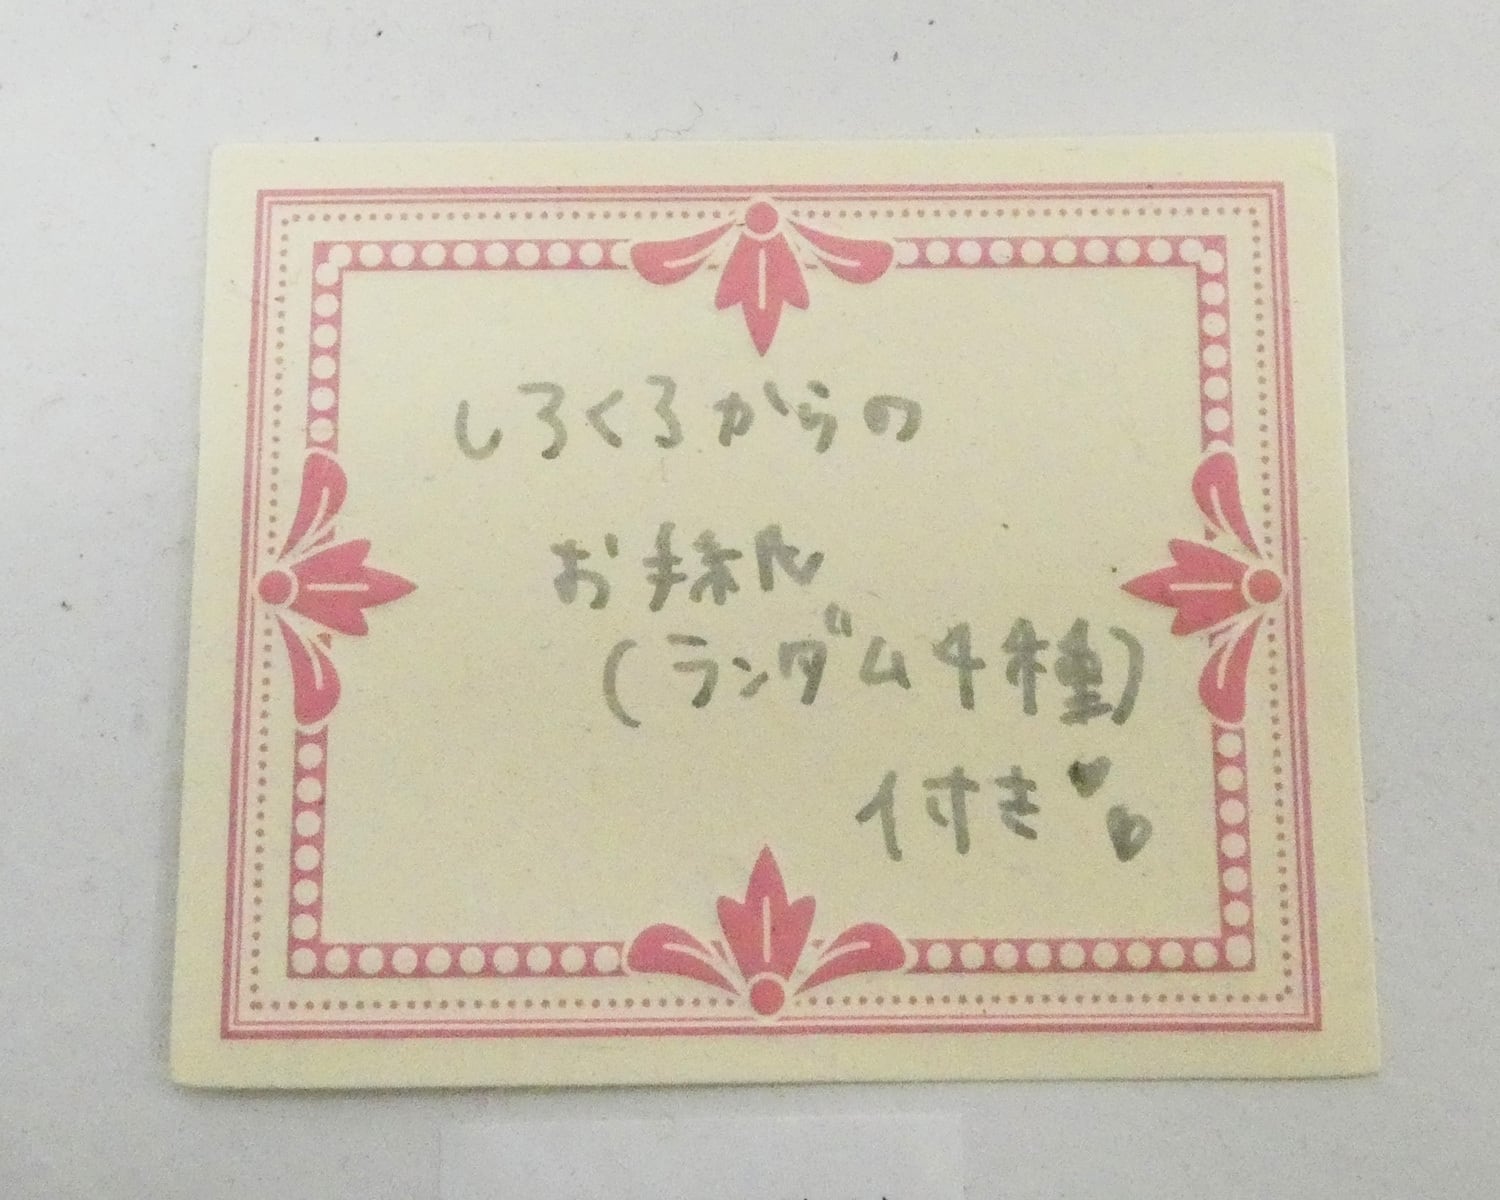 しろくろからの
お手紙
(ランダム4種)
付き♥♥